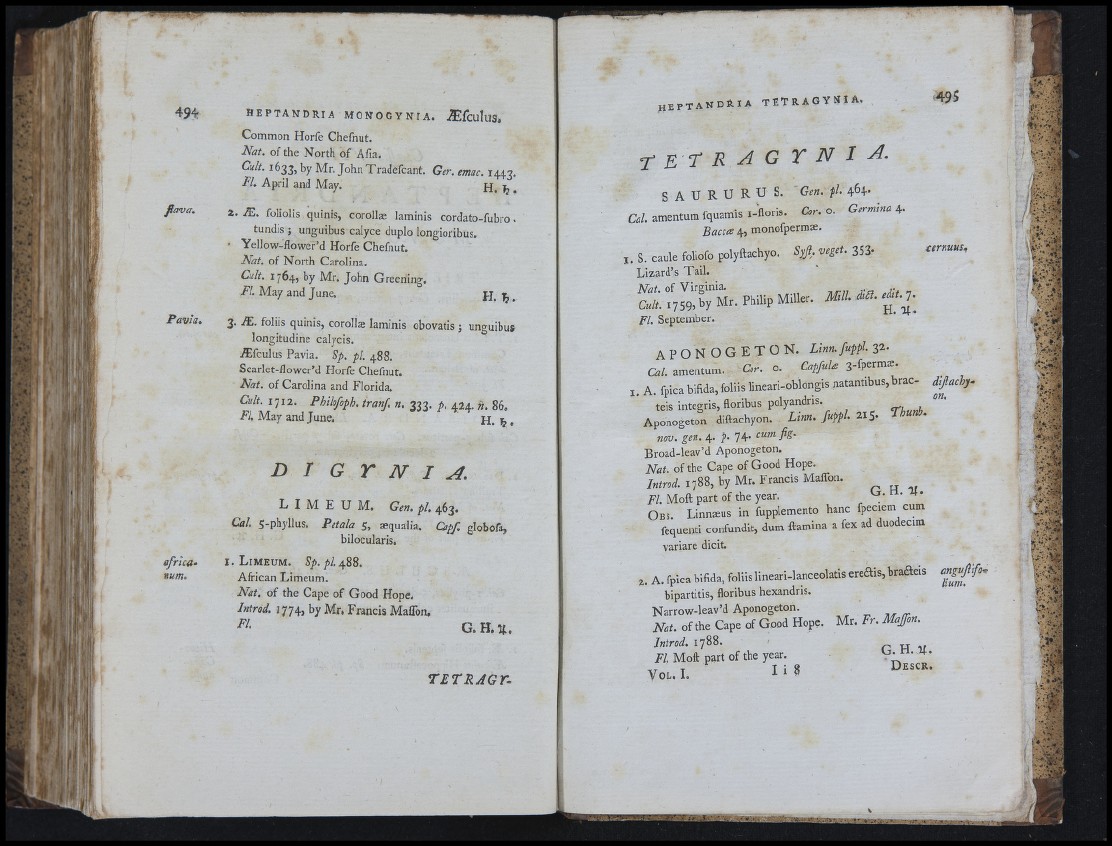 494 HEPTANDRIA MONOGYNIA. Æſculus.
Common Horſe Cheſnut.
Nat. of the North of Aſia.
Cult. 1633, by Mr. John Tradeſcant. Ger. emac. 1443.
Fl. April and May. H. ♄.
flava. 2. Æ. foliolis quinis, corollæ laminis cordato-ſubro-
tundis; unguibus calyce duplo longioribus.
Yellow-flower'd Horſe Cheſnut.
Nat. of North Carolina.
Cult. 1764, by Mr. John Greening.
Fl. May and June. H. ♄.
Pavia. 3. Æ. foliis quinis, corollæ laminis obovatis; unguibus
longitudine calycis.
Æſculus Pavia. Sp. pl. 488.
Scarlet-flower'd Horſe Cheſnut.
Nat. of Carolina and Florida.
Cult. 1712. Philoſoph. tranſ. n. 333. p. 424. n. 86.
Fl. May and June. H. ♄.
DIGYNIA.
LIMEUM. Gen. pl. 463.
Cal. 5-phyllus. Petala 5, æqualia. Capſ. globoſa,
bilocularis.
africa- 1. LIMEUM. Sp. pl. 488.
num. African Limeum.
Nat. of the Cape of Good Hope.
Introd. 1774, by Mr. Francis Maſſon.
Fl. G. H. ♃.
TETRAGY-
HEPTANDRIA TETRAGYNIA. 495
TETRAGYNIA.
SAURURUS. Gen. pl. 464.
Cal. amentum ſquamis 1-floris. Cor. 0. Germina 4.
Baccæ 4, monoſpermæ.
1. S. caule folioſo polyſtachyo. Syſt. veget. 353. cernuus.
Lizard's Tail.
Nat. of Virginia.
Cult. 1759, by Mr. Philip Miller. Mill. dict. edit. 7.
Fl. September. H. ♃.
APONOGETON. Linn. ſuppl. 32.
Cal. amentum. Cor. 0. Capſulæ 3-ſpermæ.
1. A. ſpica bifida, foliis lineari-oblongis natantibus, brac- diſtachy-
teis integris, floribus polyandris. on.
Aponogeton diſtachyon. Linn. ſuppl. 215. Thunb.
nov. gen. 4. p. 74. cum fig.
Broad-leav'd Aponogeton.
Nat. of the Cape of Good Hope.
Introd. 1788, by Mr. Francis Maſſon.
Fl. Moſt part of the year. G. H. ♃.
OBS. Linnæus in ſupplemento hanc ſpeciem cum
ſequenti confundit, dum ſtamina a ſex ad duodecim
variare dicit.
2. A. ſpica bifida, foliis lineari-lanceolatis erectis, bracteis anguſtifo-
bipartitis, floribus hexandris. lium.
Narrow-leav'd Aponogeton.
Nat. of the Cape of Good Hope. Mr. Fr. Maſſon.
Introd. 1788.
Fl. Moſt part of the year. G. H. ♃.
VOL. I. I i 8 DESCR.